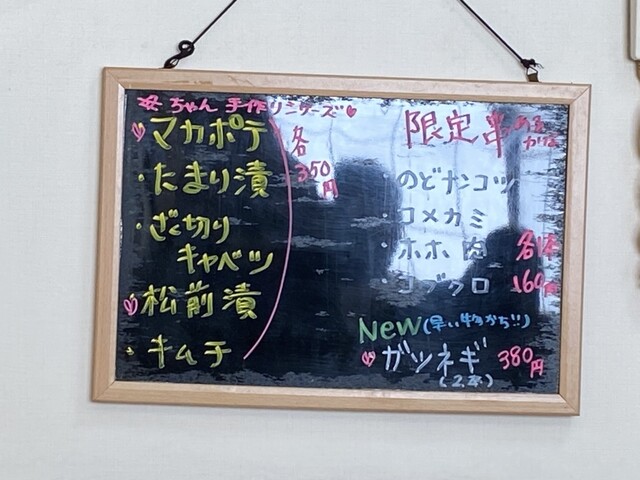 ちゃん 手作りシリーズ
マカポテ
・たまり漬
・ざく切り
キャベツ
松前漬
・キムチ
各
350
円
限定串
・のどナンコツ
・コメカミ
・ホホ肉
・コブクロ
各1本
160円
New(早い物がち!!)
ガツネギ 380円
(2本)